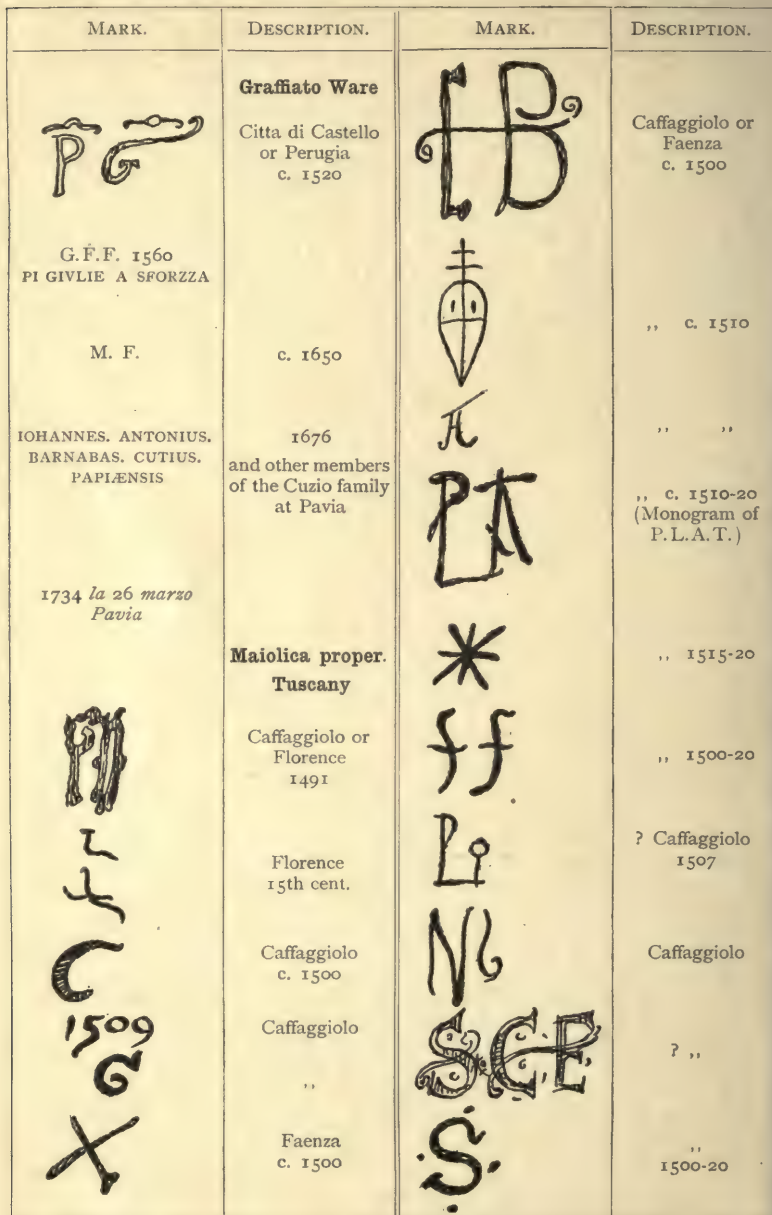 MARK.
DESCRIPTION.
Graffiato Ware
P G
Citta di Castello
or Perugia
c. 1520
G.F.F. 1560
PI GIVLIE A SFORZZA
M. F.
c. 1650
IOHANNES. ANTONIUS.
BARNABAS. CUTIUS.
PAPIÆNSIS
1676
and other members
of the Cuzio family
at Pavia
1734 la 26 marzo
Pavia
Maiolica proper.
Tuscany
Caffaggiolo or
Florence
1491
Florence
15th cent.
C
Caffaggiolo
c. 1500
1509
Caffaggiolo
G
,,
Faenza
c. 1500
MARK.
DESCRIPTION.
Caffaggiolo or
Faenza
c. 1500
,, c. 1510
,, ,,
,, c. 1510-20
(Monogram of
P.L.A.T.)
,, 1515-20
ff
,, 1500-20
? Caffaggiolo
1507
Caffaggiolo
S.C.E.
? ,,
S
,,
1500-20